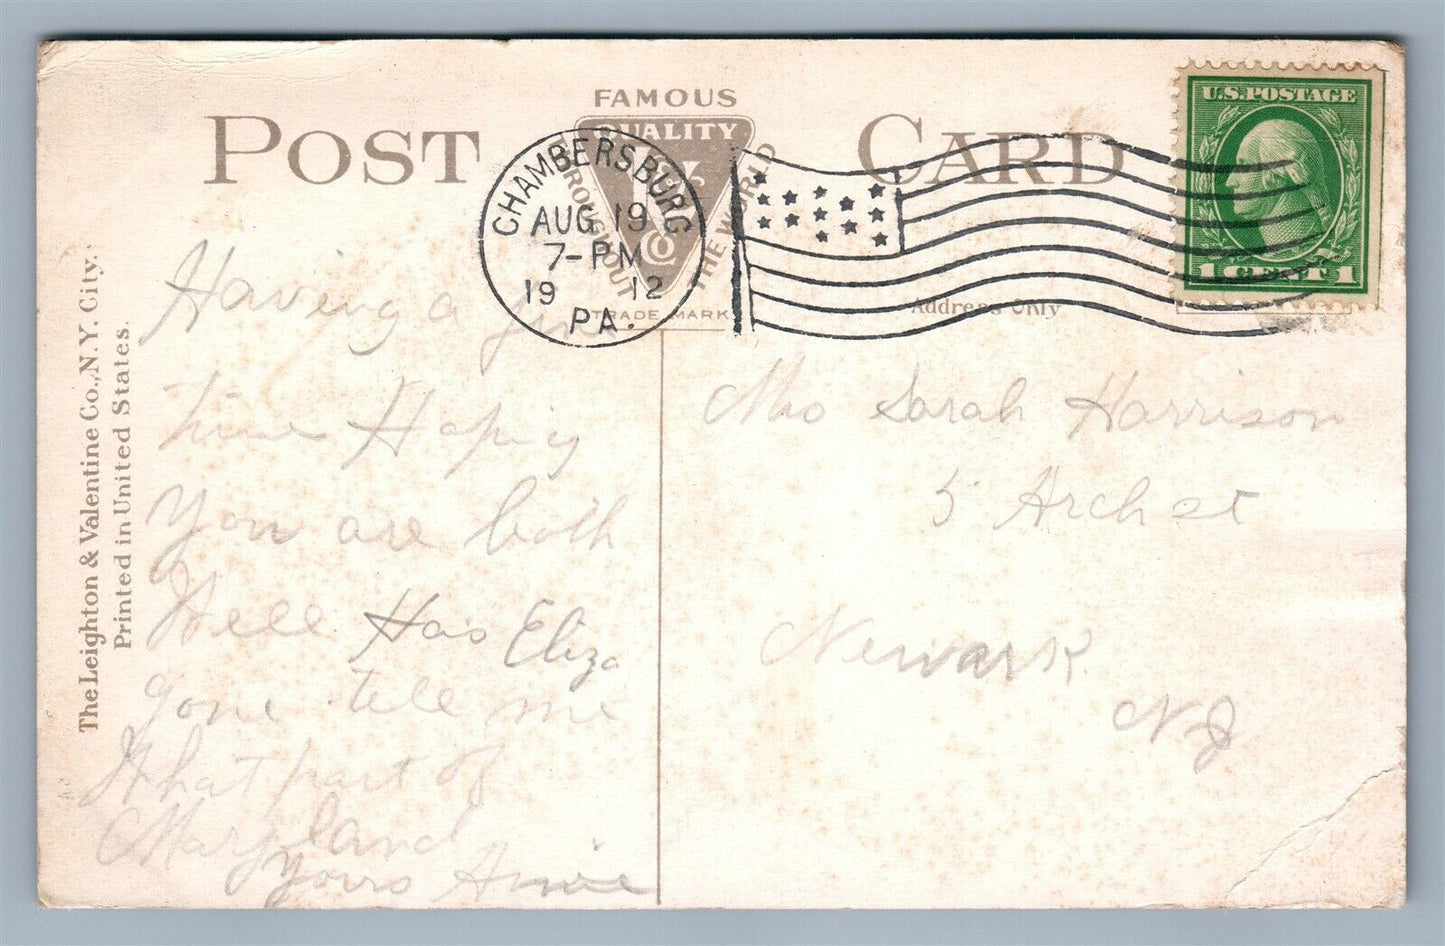 POST CARD
FAMOUS
QUALITY
THROUGHOUT THE WORLD
TRADE MARK
CHAMBERSBURG
AUG 19
7-PM
19 12
PA.
U.S. POSTAGE
1 CENT 1
Address Only
The Leighton & Valentine Co., N.Y. City.
Printed in United States.
Having a
time Hoping
You are both
Well Has Eliza
gone tell me
What part of
Maryland
Yours Annie
Sarah Harrison
5 Arch st
Newark
NJ